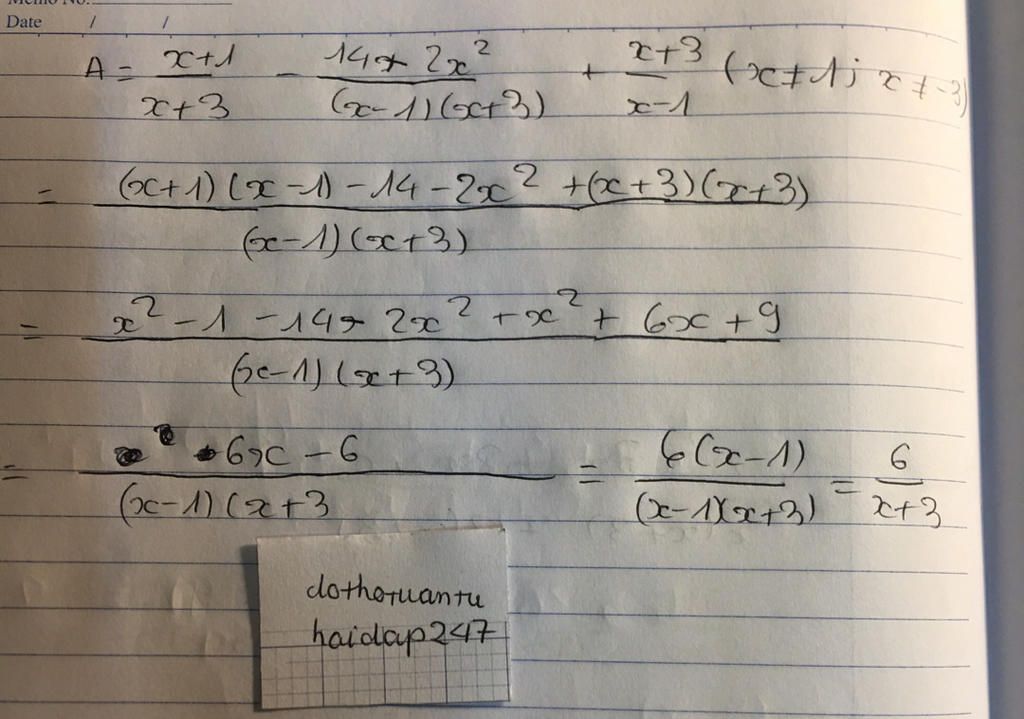 Memo No.
Date / /
A = \frac{x+1}{x+3} - \frac{14+2x^2}{(x-1)(x+3)} + \frac{x+3}{x-1} (x≠1; x≠-3)
= \frac{(x+1)(x-1)-14-2x^2+(x+3)(x+3)}{(x-1)(x+3)}
= \frac{x^2-1-14-2x^2+x^2+6x+9}{(x-1)(x+3)}
= \frac{6x-6}{(x-1)(x+3} = \frac{6(x-1)}{(x-1)(x+3)} = \frac{6}{x+3}
dothotuantu
haidap247